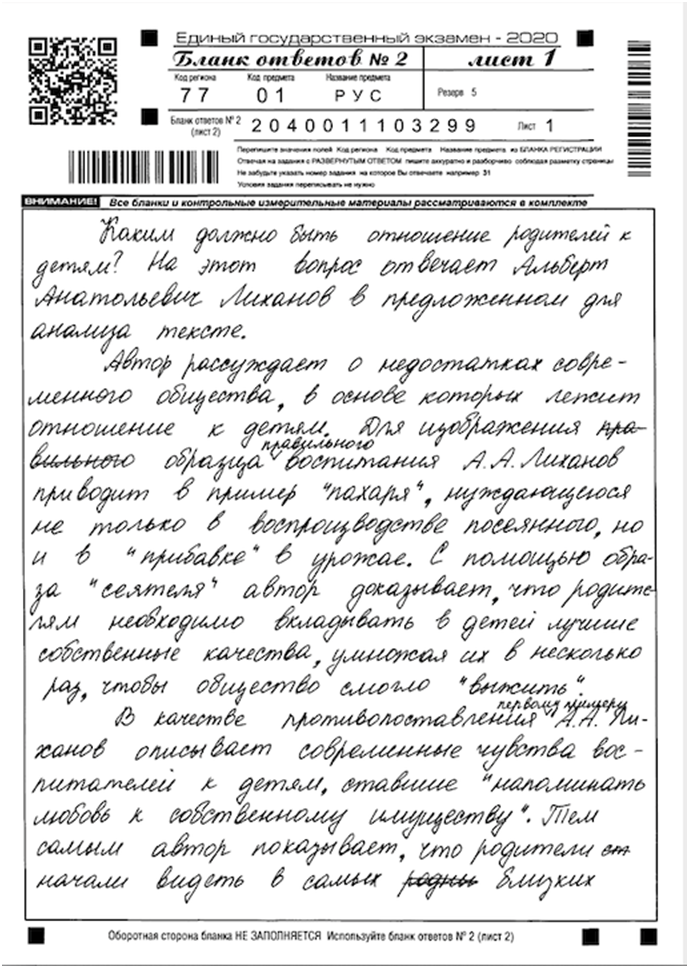 Единый государственный экзамен - 2020
Бланк ответов № 2 лист 1
Код региона Код предмета Название предмета
77 01 РУС Резерв 5
Бланк ответов № 2 (лист 2) 2040011103299 Лист 1
Перепишите значения полей Код региона Код предмета Название предмета из БЛАНКА РЕГИСТРАЦИИ
Отвечая на задания с РАЗВЕРНУТЫМ ОТВЕТОМ пишите аккуратно и разборчиво соблюдая разметку страницы
Не забудьте указать номер задания на которое Вы отвечаете например 31
Условия задания переписывать не нужно
ВНИМАНИЕ! Все бланки и контрольные измерительные материалы рассматриваются в комплекте
Каким должно быть отношение родителей к
детям? На этот вопрос отвечает Альберт
Анатольевич Лиханов в предложенном для
анализа тексте.
Автор рассуждает о недостатках совре-
менного общества, в основе которых лежит
отношение к детям. Для изображения пра-
вильного образца правильного воспитания А.А.Лиханов
приводит в пример "пахаря", нуждающегося
не только в воспроизводстве посеянного, но
и в "прибавке" в урожае. С помощью обра-
за "сеятеля" автор доказывает, что родите-
лям необходимо вкладывать в детей лучшие
собственные качества, умножая их в несколько
раз, чтобы общество смогло "выжить".
В качестве противопоставления первому примеру А.А. Ли-
ханов описывает современные чувства вос-
питателей к детям, ставшие "напоминать
любовь к собственному имуществу". Тем
самым автор показывает, что родители ст
начали видеть в самых родны близких
Оборотная сторона бланка НЕ ЗАПОЛНЯЕТСЯ Используйте бланк ответов № 2 (лист 2)